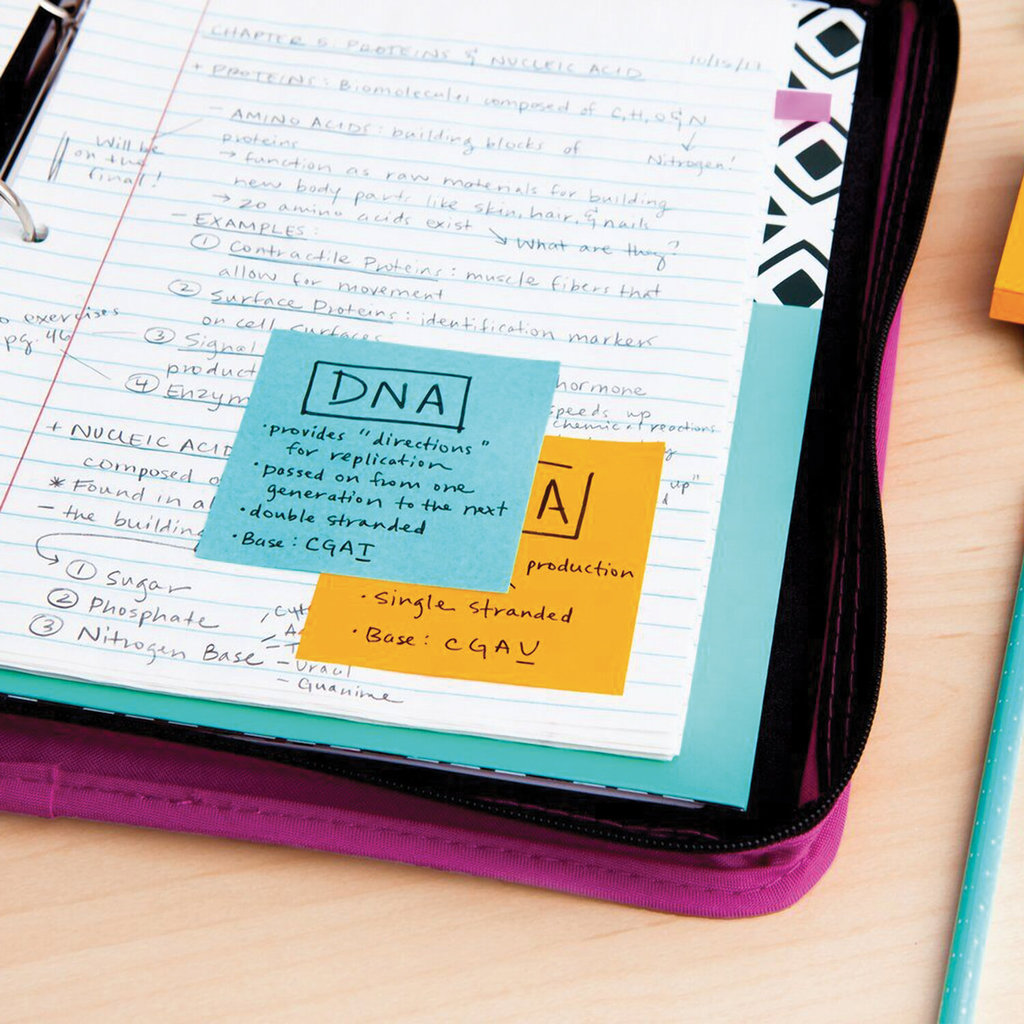 CHAPTER 5: PROTEINS & NUCLEIC ACID 10/15/17
+ PROTEINS: Biomolecules composed of C, H, O & N
Nitrogen!
- AMINO ACIDS: building blocks of
proteins
Will be
on the
final!
→ function as raw materials for building
new body parts like skin, hair, & nails
→ 20 amino acids exist ↘ What are they?
- EXAMPLES:
① Contractile Proteins: muscle fibers that
allow for movement
② Surface Proteins: identification markers
on cell surfaces
exercises
pg. 46
③ Signal
product hormone
④ Enzym speeds up
chemical reactions
+ NUCLEIC ACID
composed o up"
* Found in al
- the building
① Sugar
② Phosphate
③ Nitrogen Base
- Uracil
- Guanine
DNA
• provides "directions"
for replication
• passed on from one
generation to the next
• double stranded
• Base: CGAT
A
production
• Single stranded
• Base: CGAU